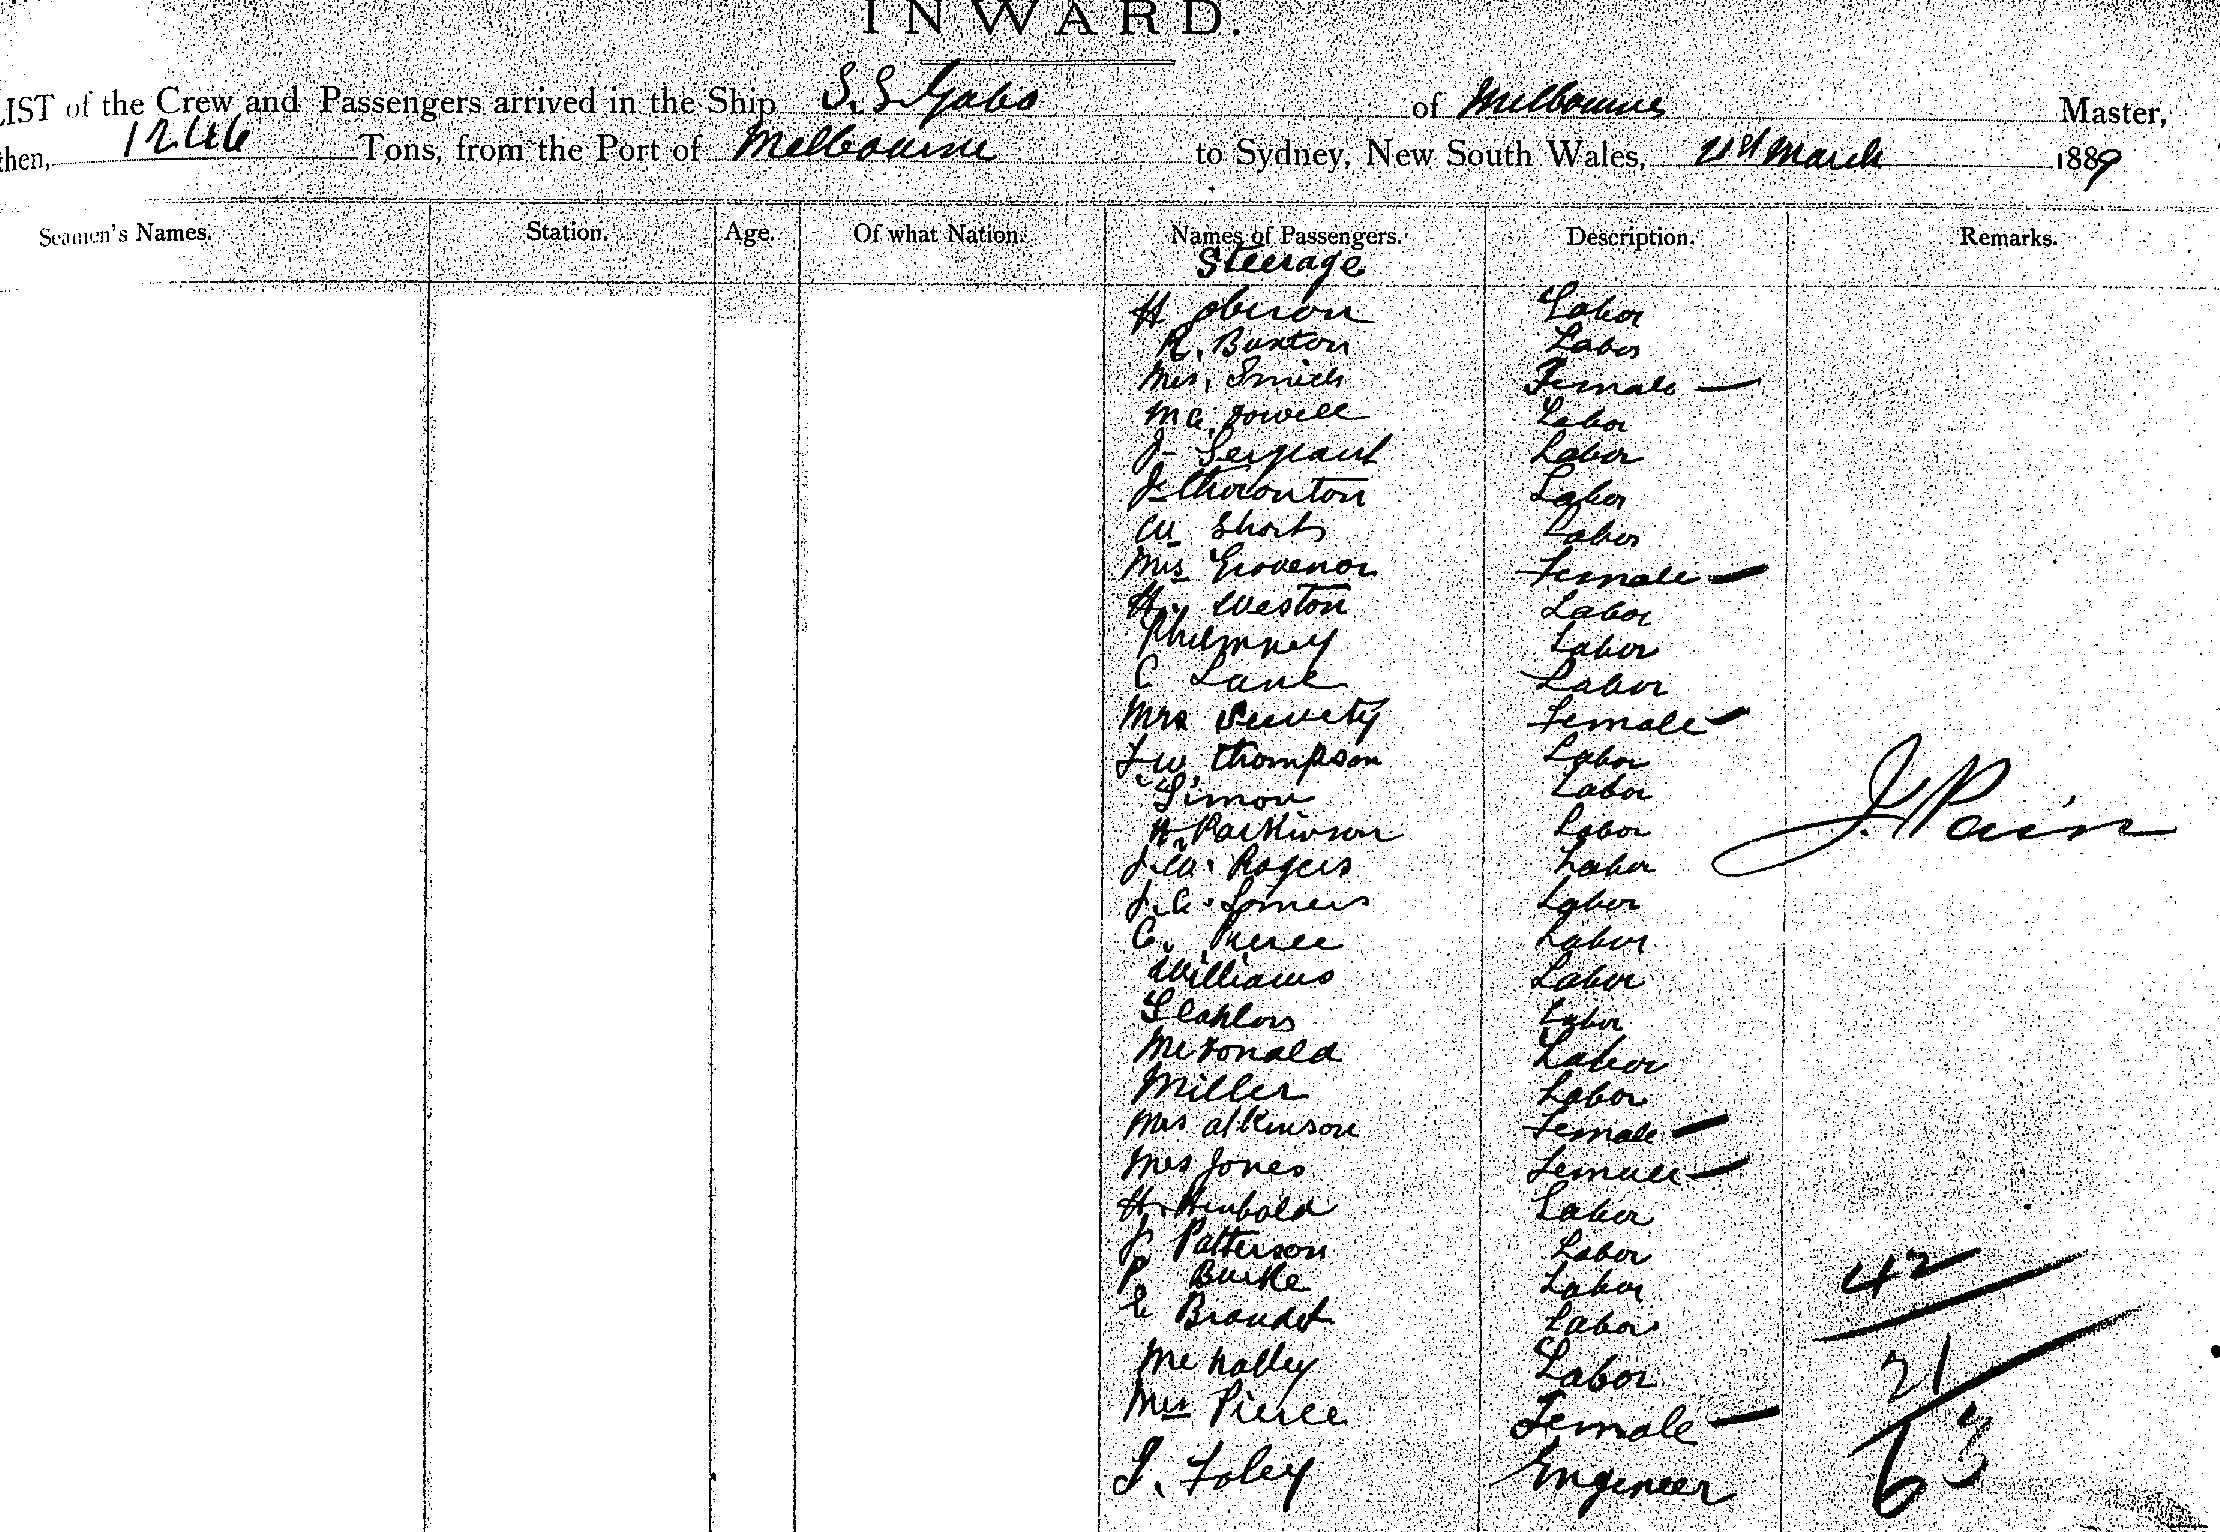 INWARD.
LIST of the Crew and Passengers arrived in the Ship S.S. Gabo of Melbourne Master,
then, Tons, from the Port of Melbourne to Sydney, New South Wales, 21st March 1889
Seamen's Names. Station. Age. Of what Nation. Names of Passengers. Description. Remarks.
Steerage
H Oberon Labor
R. Buxton Labor
Mrs. Smith Female —
Mc. Dowell Labor
J- Sergeant Labor
J- Thoronton Labor
W Shorts Labor
Mrs Grovenor Female —
H. Weston Labor
Labor
C Lane Labor
Mrs Female —
F. W. Thompson Labor
Simon Labor
H. Parkinson Labor
J. W. Rogers Labor
J. Pain
J. C. Somers Labor
C. Pierce Labor
Williams Labor
Labor
McDonald Labor
Miller Labor
Mrs Atkinson Female —
Mrs Jones Female —
H. Labor
J Patterson Labor
P Burke Labor
42
E Labor
McNally Labor
21
Mrs Pierce Female —
63
J. Foley Engineer